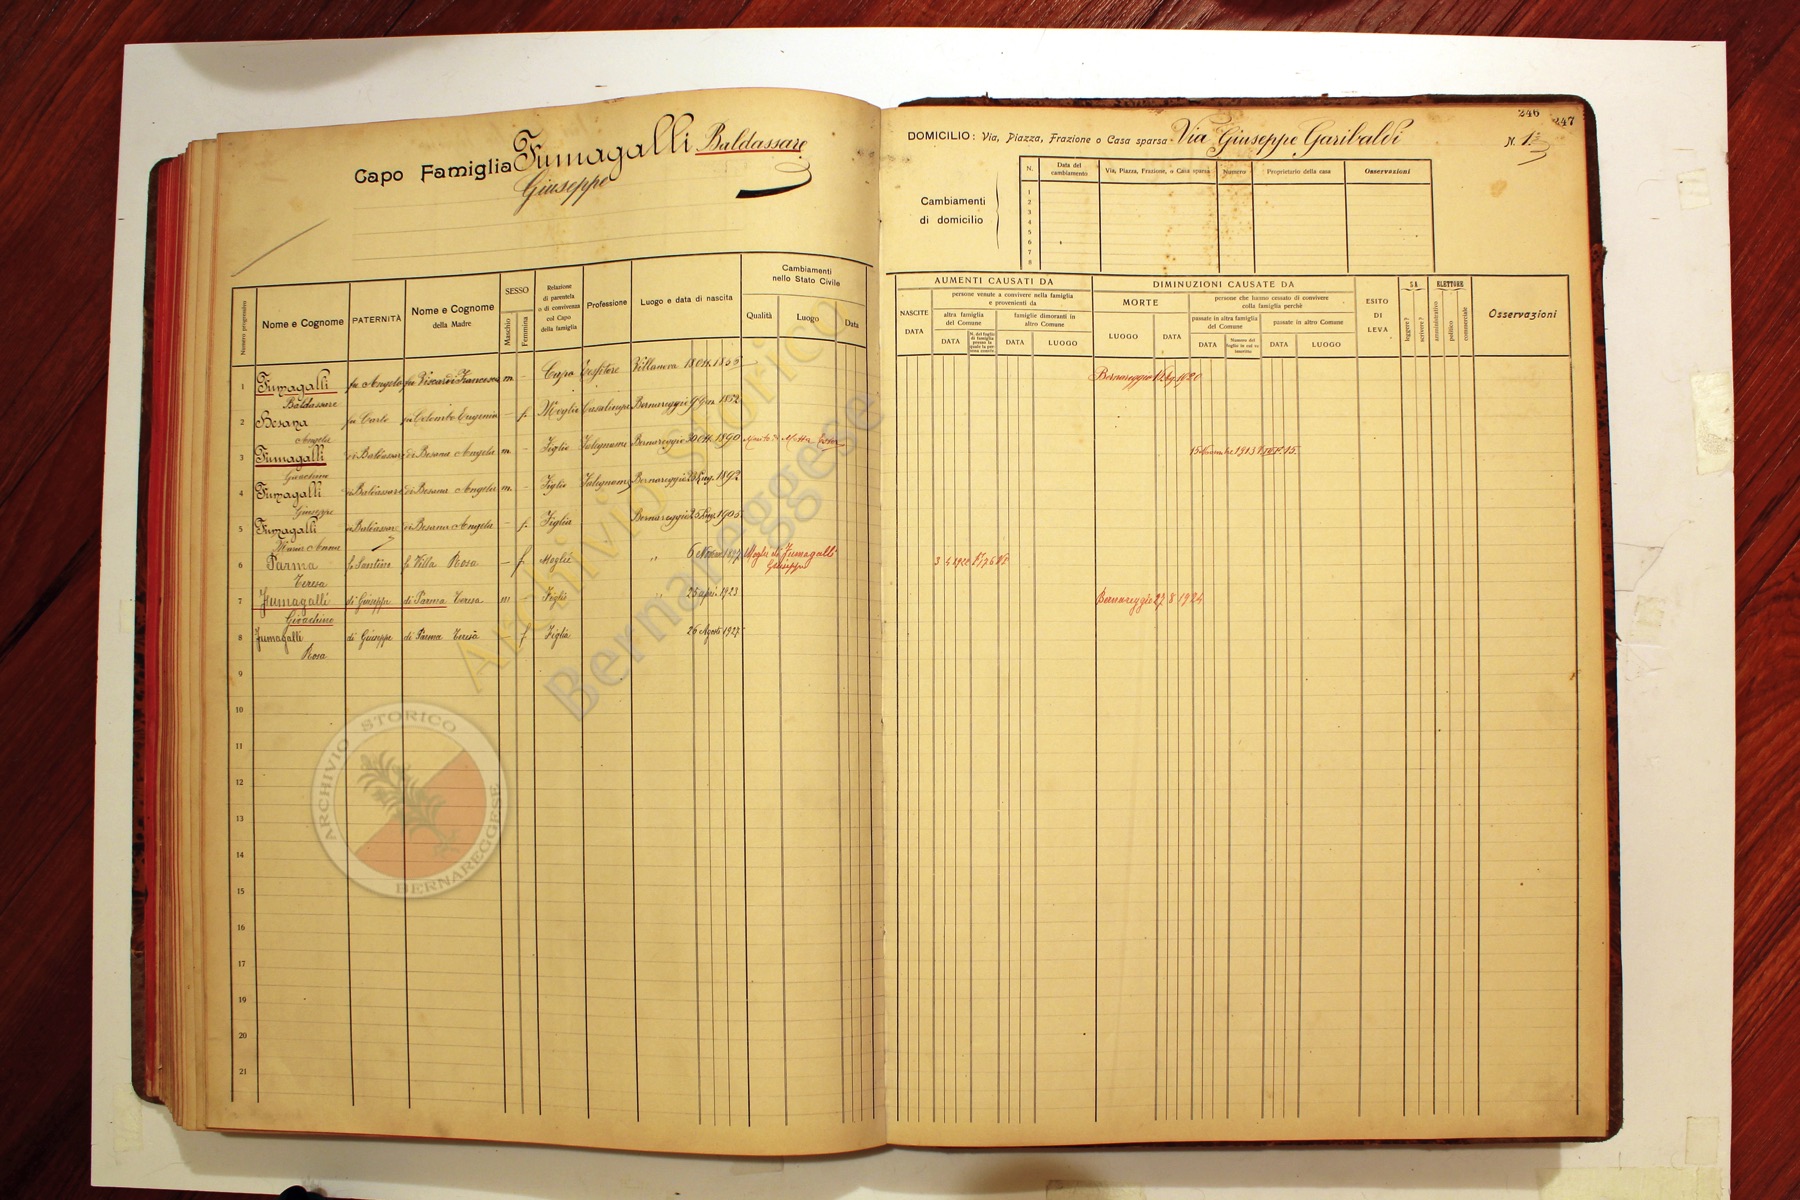 Capo Famiglia Fumagalli Baldassare
Giuseppe
Numero progressivo
Nome e Cognome
PATERNITÀ
Nome e Cognome
della Madre
SESSO
Maschio
Femmina
Relazione
di parentela
o di convivenza
col Capo
della famiglia
Professione
Luogo e data di nascita
Cambiamenti
nello Stato Civile
Qualità
Luogo
Data
1 Fumagalli fu Angelo fu Viscardi Francesca m - Capo Villanova 18 Ott. 1855
Baldassare
2 Besana fu Carlo fu Colombo Eugenia - f. Moglie Casalinga Bernareggio 9 Gen. 1852
Angela
3 Fumagalli di Baldassare di Besana Angela m. - Figlio Falegname Bernareggio 20 Ott. 1890 Marito di Motta
Gioachino
4 Fumagalli di Baldassare di Besana Angela m. - Figlio Falegname Bernareggio 1892
Giuseppe
5 Fumagalli di Baldassare di Besana Angela - f. Figlia Bernareggio 25 1905
Maria Anna
6 Parma fu Santino fu Villa Rosa - f. Moglie " 6 1897 Moglie di Fumagalli
Teresa Giuseppe
7 Fumagalli di Giuseppe di Parma Teresa m - Figlio " 25 apri. 1923
Gioachino
8 Fumagalli di Giuseppe di Parma Teresa f Figlia 26 Agosto 1927
Rosa
9
10
11
12
13
14
15
16
17
18
19
20
21
246
247
DOMICILIO: Via, Piazza, Frazione o Casa sparsa Via Giuseppe Garibaldi N. 1
Cambiamenti
di domicilio
N.
Data del
cambiamento
Via, Piazza, Frazione, o Casa sparsa
Numero
Proprietario della casa
Osservazioni
1
2
3
4
5
6
7
8
AUMENTI CAUSATI DA
NASCITE
DATA
persone venute a convivere nella famiglia
e provenienti da
altra famiglia
del Comune
DATA
N. del foglio
di famiglia
presso la
quale la per
sona esisteva
famiglie dimoranti in
altro Comune
DATA
LUOGO
DIMINUZIONI CAUSATE DA
MORTE
LUOGO
DATA
persone che hanno causato di convivere
colla famiglia perchè
passate in altra famiglia
del Comune
DATA
Numero del
foglio in cui va
inserito
passate in altro Comune
DATA
LUOGO
ESITO
DI
LEVA
SA
leggere?
scrivere?
ELETTORE
amministrativo
politico
commerciale
Osservazioni
Bernareggio 1920
15 Novembre 1913
3 4 1922
Bernareggio 27 8 1924
Archivio Storico
Bernareggese
ARCHIVIO STORICO
BERNAREGGESE